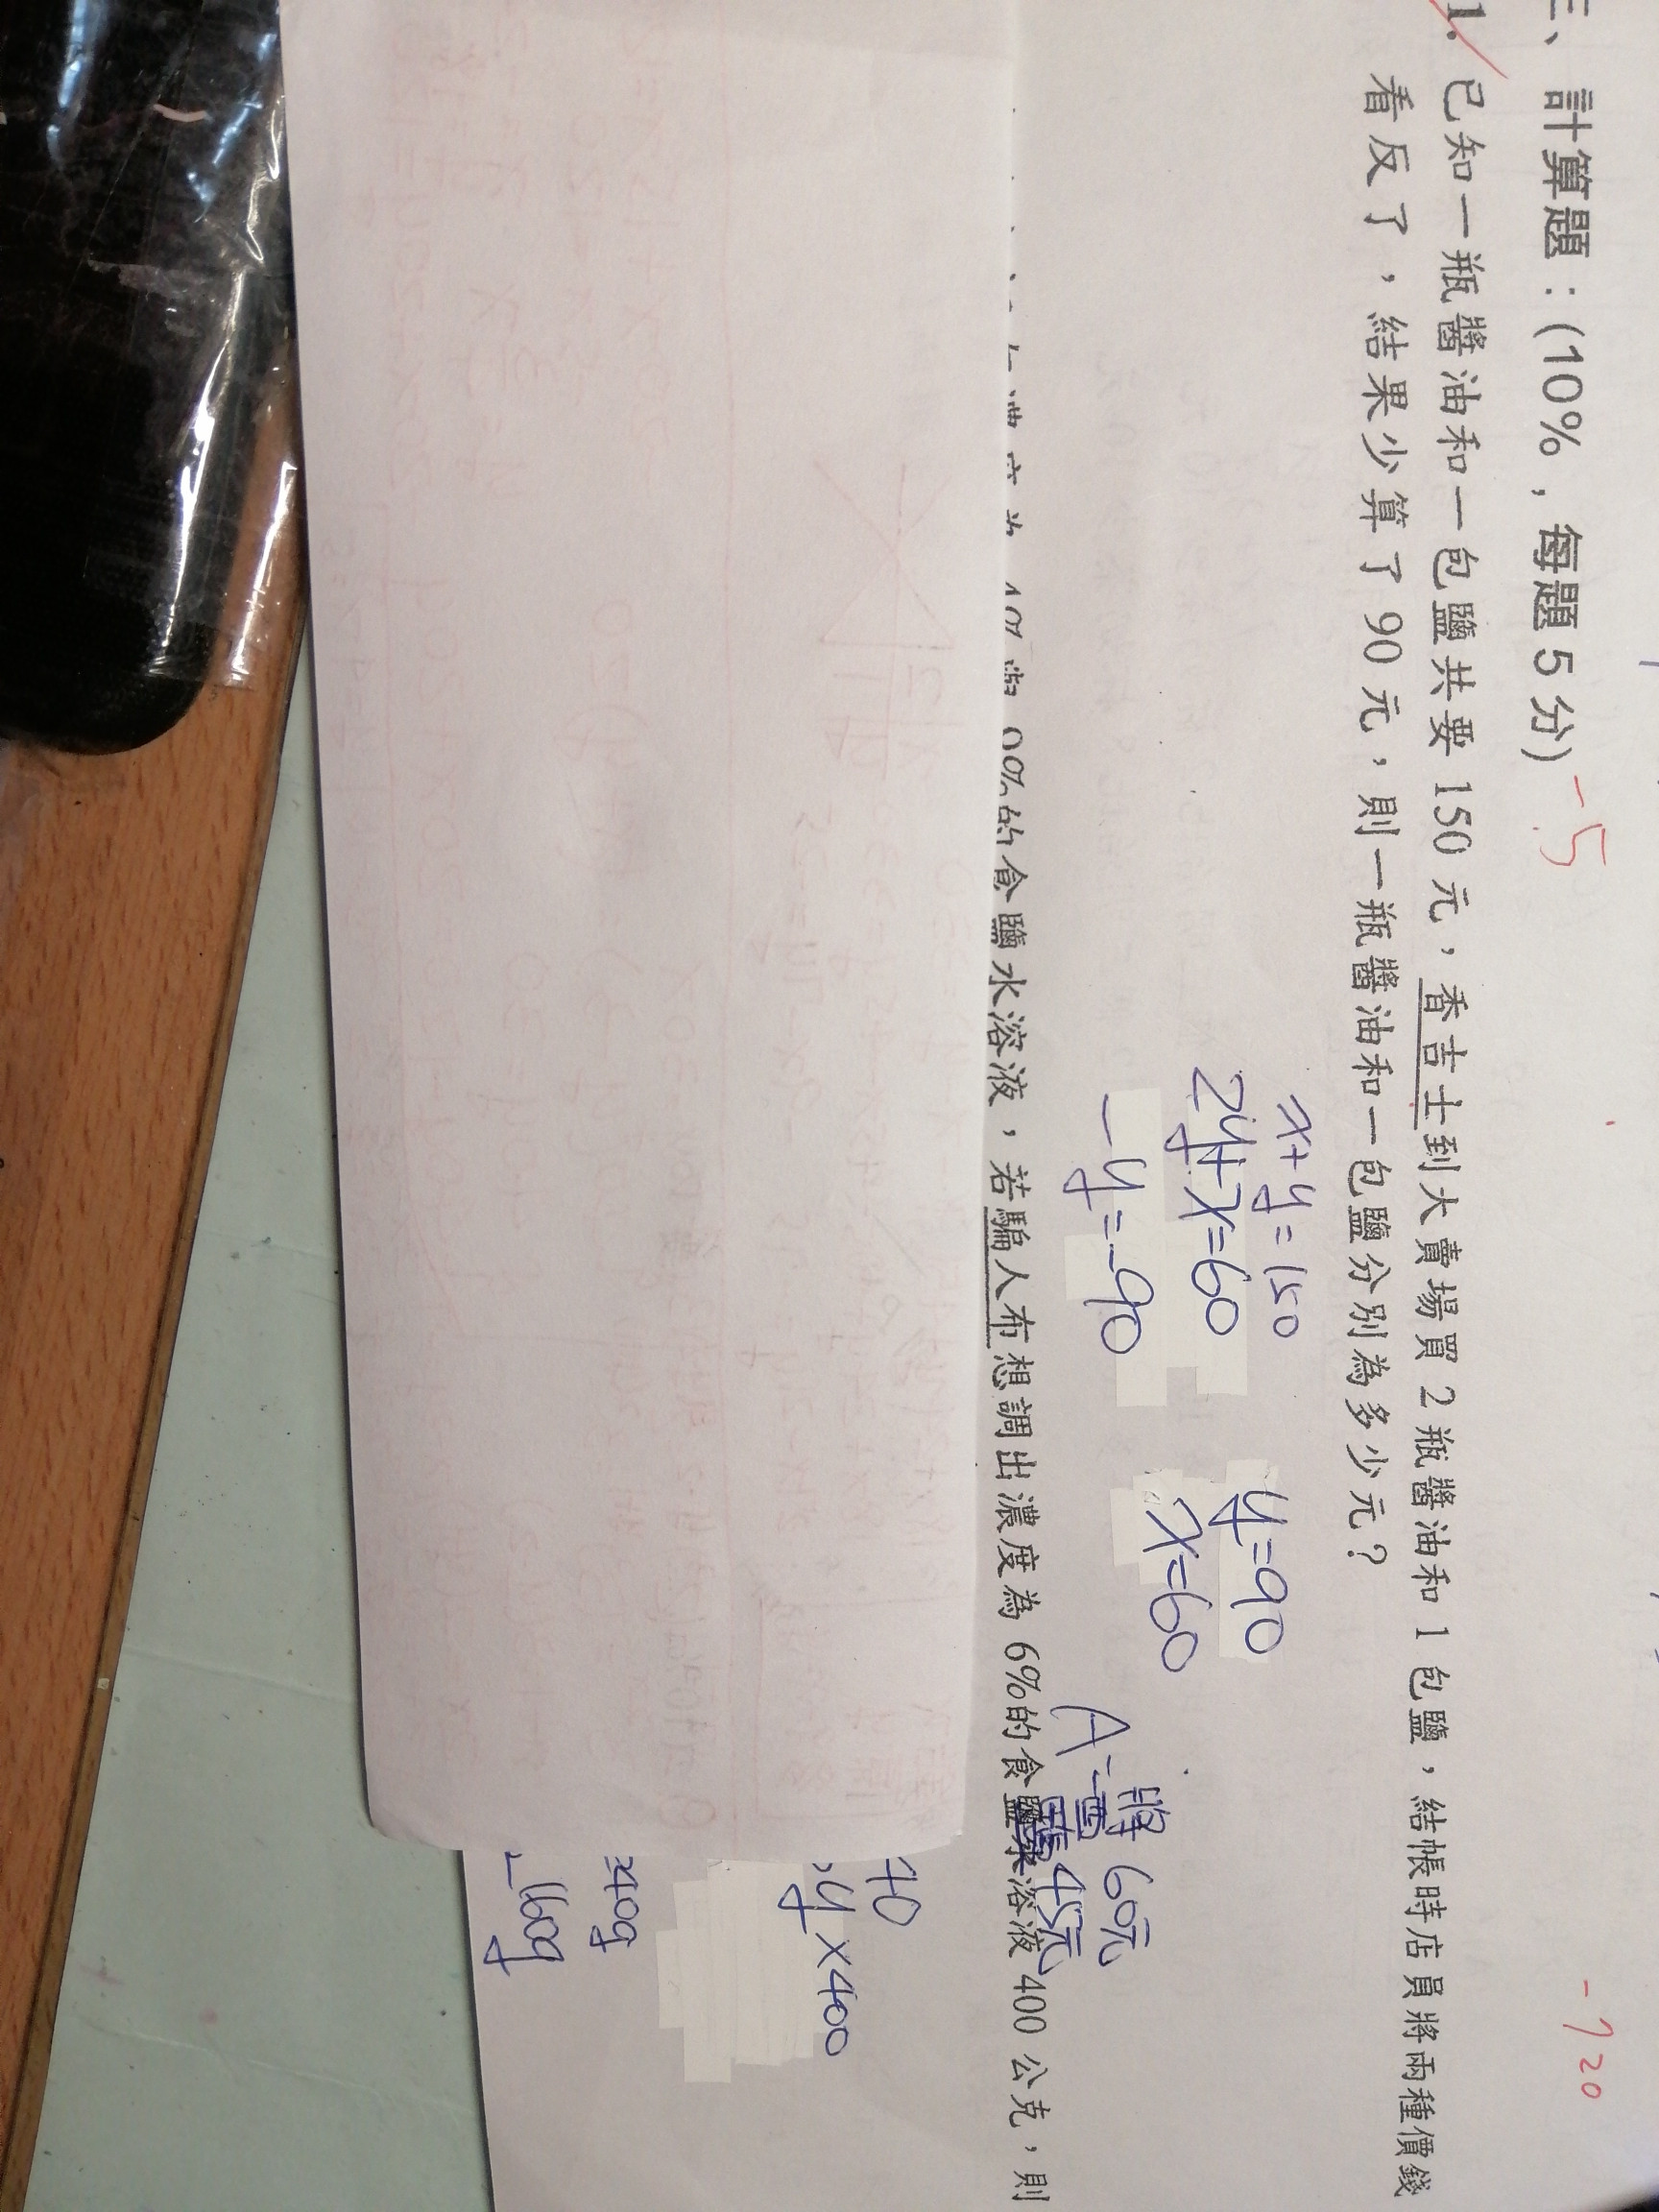 三、計算題：(10%，每題 5 分) -5
-720
1. 已知一瓶醬油和一包鹽共要 150 元，香吉士到大賣場買 2 瓶醬油和 1 包鹽，結帳時店員將兩種價錢
看反了，結果少算了 90 元，則一瓶醬油和一包鹽分別為多少元？
x+y=150
2y+x=60
-y=-90
y=90
x=60
A=醬60元
鹽45元
的食鹽水溶液，若騙人布想調出濃度為 6%的食鹽水溶液 400 公克，則
40
y×400